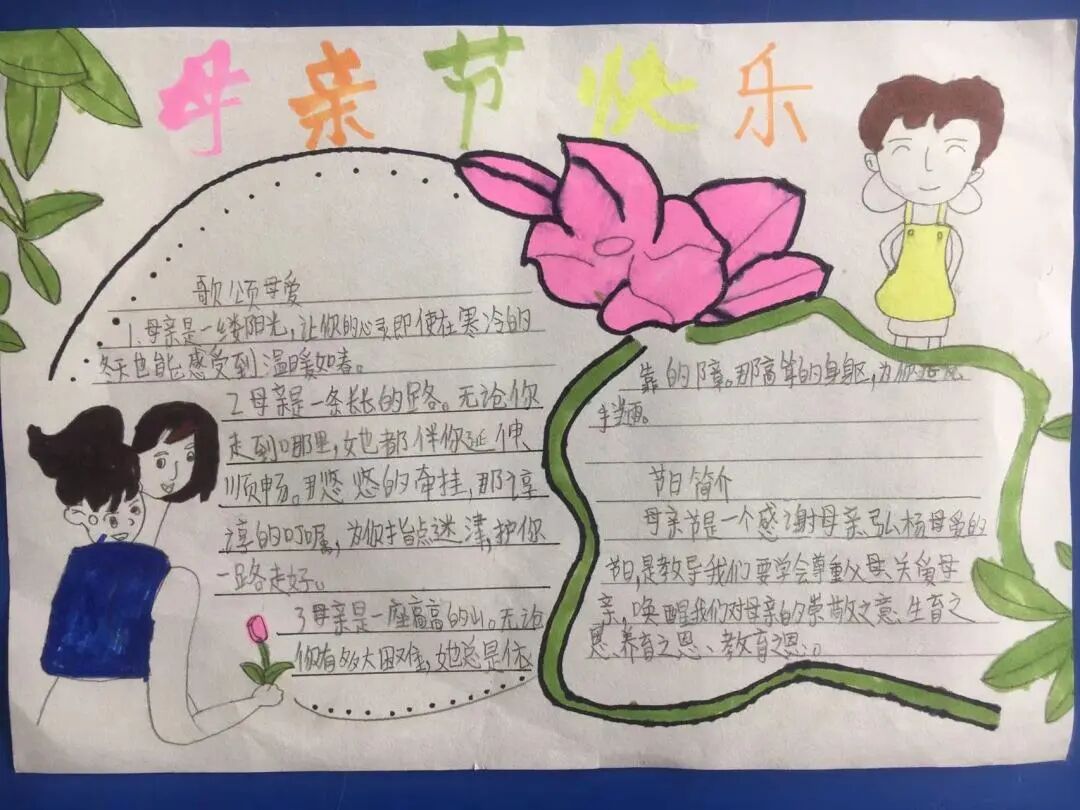 母亲节快乐
歌颂母爱
1.母亲是一缕阳光,让你的心灵即使在寒冷的
冬天也能感受到温暖如春。
2母亲是一条长长的路。无论你
走到哪里,她都伴你延伸
顺畅。那悠悠的牵挂,那谆
谆的叮嘱,为你指点迷津,护你
一路走好。
3母亲是一座高高的山。无论
你有多大困难,她总是依
靠的障。那高耸的身躯,为你
节日简介
母亲节是一个感谢母亲弘杨母爱的
节日,是教导我们要学会尊重父母、关爱母
亲,唤醒我们对母亲的崇敬之意、生育之
恩、养育之恩、教育之恩。